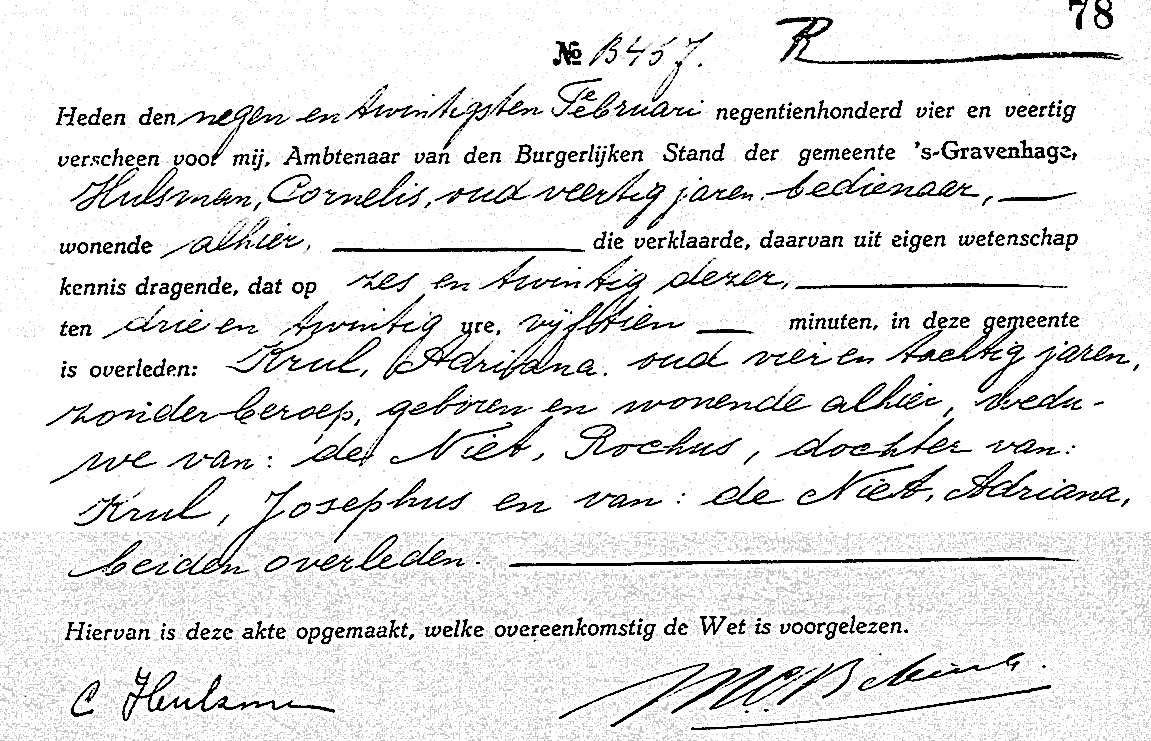 78
№ B457. R
Heden den negen en twintigsten Februari negentienhonderd vier en veertig
verscheen voor mij, Ambtenaar van den Burgerlijken Stand der gemeente 's-Gravenhage,
Hulsman, Cornelis, oud veertig jaren, bedienaar,
wonende alhier, die verklaarde, daarvan uit eigen wetenschap
kennis dragende, dat op zes en twintig dezer,
ten drie en twintig ure, vijftien minuten, in deze gemeente
is overleden: Krul, Adriana, oud vier en tachtig jaren,
zonder beroep, geboren en wonende alhier, wedu-
we van: de Niet, Rochus, dochter van:
Krul, Josephus en van: de Niet, Adriana,
beiden overleden.
Hiervan is deze akte opgemaakt, welke overeenkomstig de Wet is voorgelezen.
C Hulsman